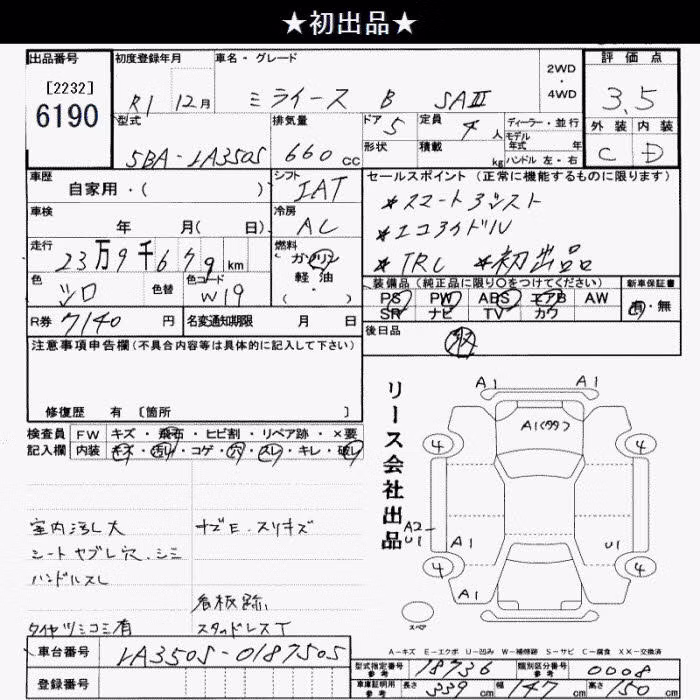 ★初出品★
出品番号 初度登録年月 車名・グレード 2WD・4WD 評価点
[2232]
6190
R1 12月 ミライース B SAⅢ 3.5
型式 排気量 ドア 5 定員 4人 ディーラー・並行 外装 内装
モデル年式 年
5BA-LA350S 660cc 形状 積載 kg ハンドル 左・右 C D
車歴 シフト セールスポイント(正常に機能するものに限ります)
自家用・( ) IAT *スマートアシスト
車検 冷房 *エコアイドル
年 月( 日) AC *TRC *初出品
走行 燃料
23万9千679km ガソリン
軽・油
・( )
色 色替 色コード 装備品(純正品に限り○をつけてください) 新車保証書
シロ W19 PS PW ABS エアB AW 有・無
SR ナビ TV カワ
R券 7140円 名変通知期限 月 日 後日品
注意事項申告欄(不具合内容等は具体的に記入して下さい)
修復歴 有 〔箇所 〕
検査員 FW キズ・飛石・ヒビ割・リペア跡・×要
記入欄 内装 キズ・汚れ・コゲ・穴・スレ・キレ・破れ
リース会社出品
A1 A1
4 4
A1
A2
U1
A1 U1
4 4
A1
スペア
室内汚レ大 キズE・スリキズ
シートヤブレ穴、シミ
ハンドルスレ
看板跡
タイヤツミコミ有 スタッドレスT
A-キズ E-エクボ U-凹み W-補修跡 S-サビ C-腐食 XX-交換済
車台番号 LA350S-0187505
型式指定番号 参考 18736 類別区分番号 参考 0008
登録番号
車庫証明用 参考 長さ 339cm 幅 147cm 高さ 150cm